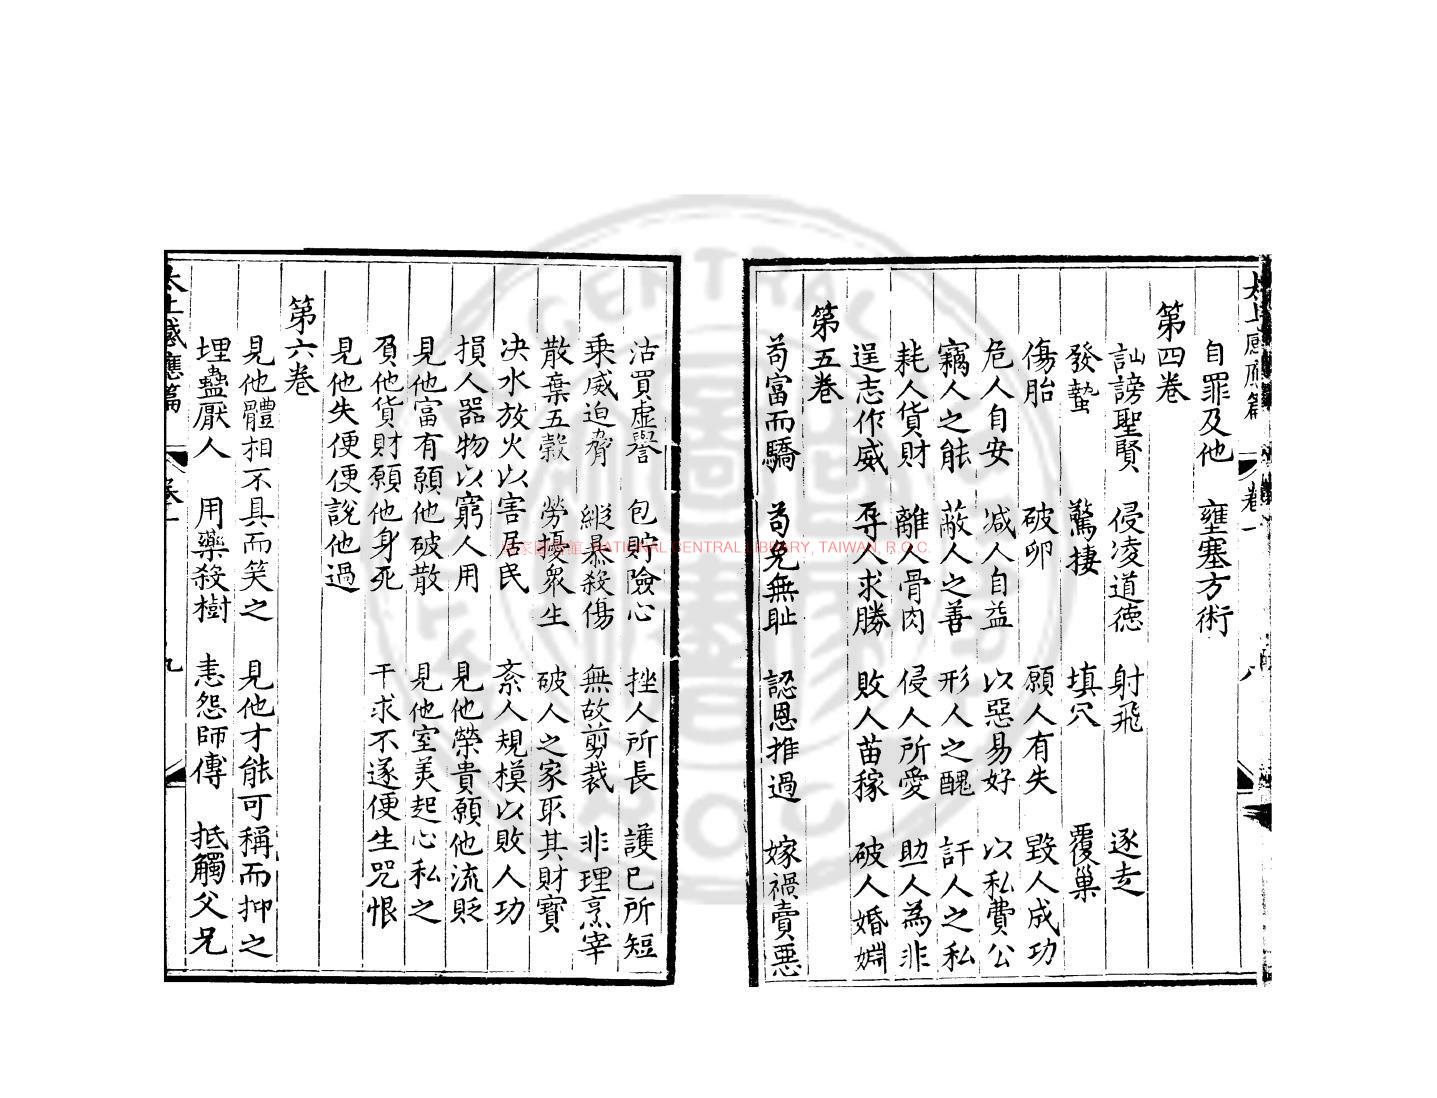 太上感應篇 卷一 八
自罪及他 壅塞方術
第四卷
訕謗聖賢 侵凌道德 射飛 逐走
發蟄 驚棲 填穴 覆巢
傷胎 破卵 願人有失 毀人成功
危人自安 減人自益 以惡易好 以私費公
竊人之能 蔽人之善 形人之醜 訐人之私
耗人貨財 離人骨肉 侵人所愛 助人為非
逞志作威 辱人求勝 敗人苗稼 破人婚姻
第五卷
苟富而驕 苟免無恥 認恩推過 嫁禍賣惡
沽買虛譽 包貯險心 挫人所長 護已所短
乘威迫脅 縱暴殺傷 無故剪裁 非理烹宰
散棄五穀 勞擾衆生 破人之家取其財寶
决水放火以害居民 紊人規模以敗人功
損人器物以窮人用 見他榮貴願他流貶
見他富有願他破散 見他室美起心私之
負他貨財願他身死 干求不遂便生咒恨
見他失便便說他過
第六卷
見他體相不具而笑之 見他才能可稱而抑之
埋蠱厭人 用藥殺樹 恚怨師傅 抵觸父兄
太上感應篇 卷一 九
國家圖書館 NATIONAL CENTRAL LIBRARY, TAIWAN, R.O.C.